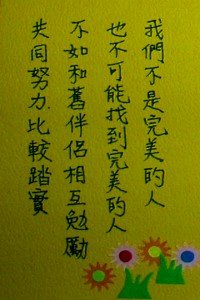 我們不是完美的人
也不可能找到完美的人
不如和舊伴侶相互勉勵
共同努力比較踏實